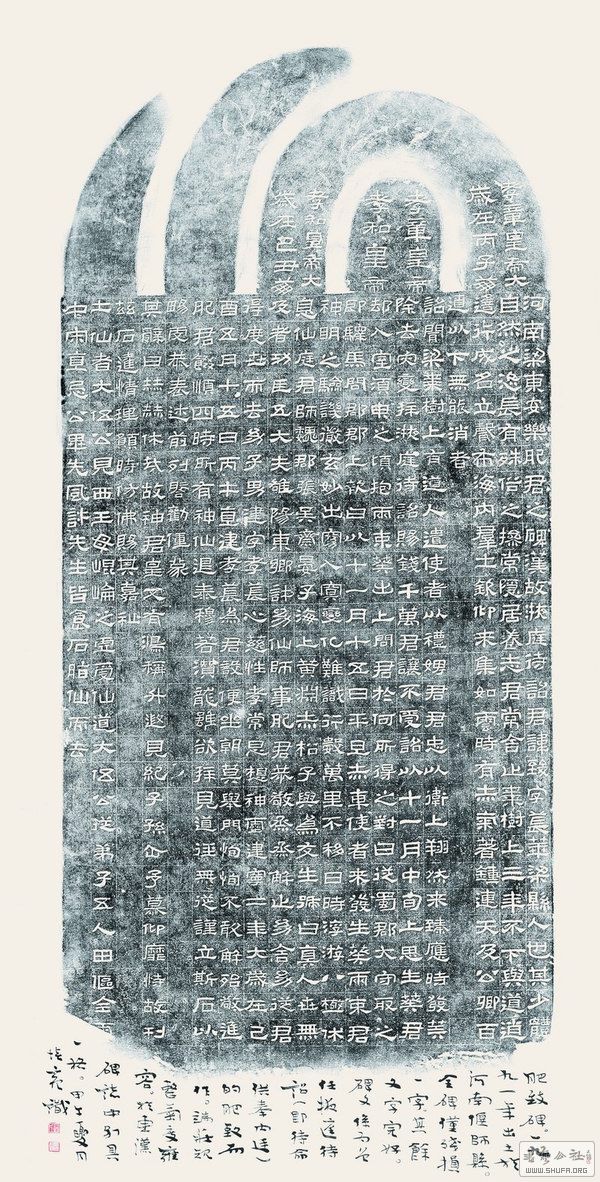 孝章皇帝
孝和皇帝
孝章皇帝大
歲在丙子崩
孝和皇帝大
歲在己丑崩
河南梁東安樂肥君之碑漢故掖庭待詔君諱致字萇華梁縣人也其少體
自然之恣長有殊俗之操常隱居養志君常舍止棗樹上三年不下與道逍
遙行成名立聲布海內群士欽仰來集如雲時有赤氣著鐘連天及公卿百
遼以下無能消者
詔聞梁棗樹上有道人遣使者以禮娉君君忠以衛上翔然來臻應時發算
除去災變拜掖庭待詔賜錢千萬君讓不受詔以十一月中旬上思生葵君
却入室須臾之頃抱兩束葵出上問君於何所得之對曰從蜀郡大守取之
即驛馬問郡郡上報曰以十一月十五日平旦赤車使者來發生葵兩束君
神明之驗譏徹玄妙出窈入冥變化難識行數萬里不移日時浮游八極休
息仙庭君師魏郡張吳齊晏子海上黃淵赤松子與為友生號曰真人世無
及者功臣五大夫雒陽東鄉許幼仙師事肥君恭敬烝烝解止幼舍幼從君
得度世而去幼子男建字孝萇心慈性孝常思想神靈建寧二年大歲在己
酉五月十五日丙午直建孝萇為君設便坐朝莫舉門恂恂不敢解殆敬進
肥君餟順四時所有神仙退泰穆若潛龍雖欲拜見道徑無從謹立斯石以
暢虔恭表述前列啓勸僮蒙
其辭曰赫赫休哉故神君皇又有鴻稱升遐見紀子孫企予慕仰靡恃故刊
茲石達情理願時仿佛賜其嘉祉
土仙者大伍公見西王母崑崙之虛受仙道大伍公從弟子五人田傴全雨
中宋直忌公畢先風許先生皆食石脂仙而去
肥致碑。一九
九一年出土於
河南偃師縣。
全碑僅殘損
一字其餘
文字完好。
碑文係為
任掖庭待
詔(即待命
供奉內廷)
的肥致而
作。端莊
氣度雍
容。於東漢
碑誌中別具
一格。甲申夏月
培亮識
WWW.SHUFA.ORG